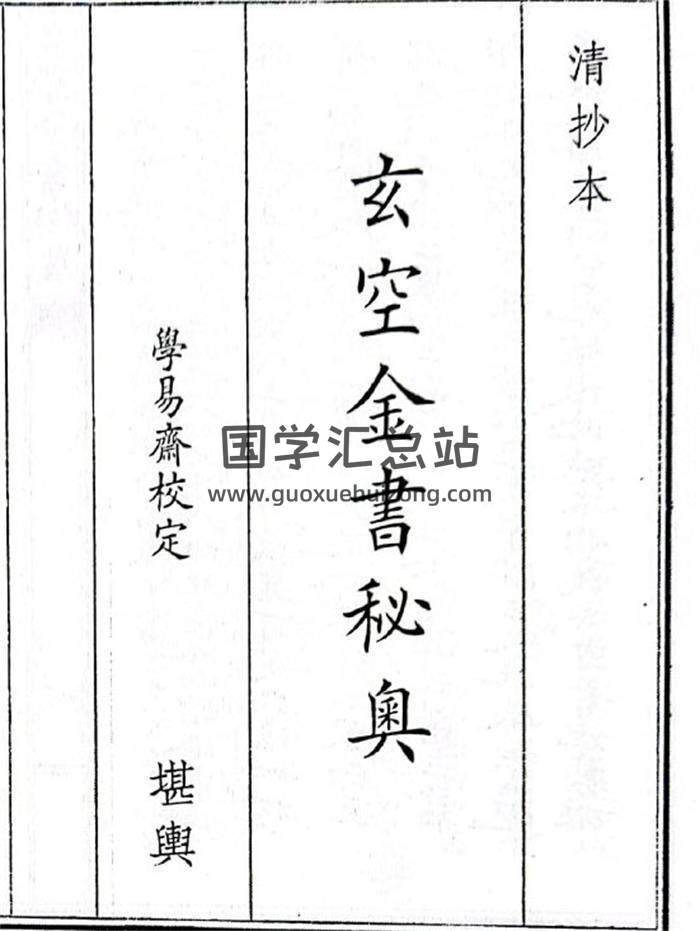 清抄本
玄空金書秘奥
學易齋校定
堪輿
国学汇总站
www.guoxuehuizong.com